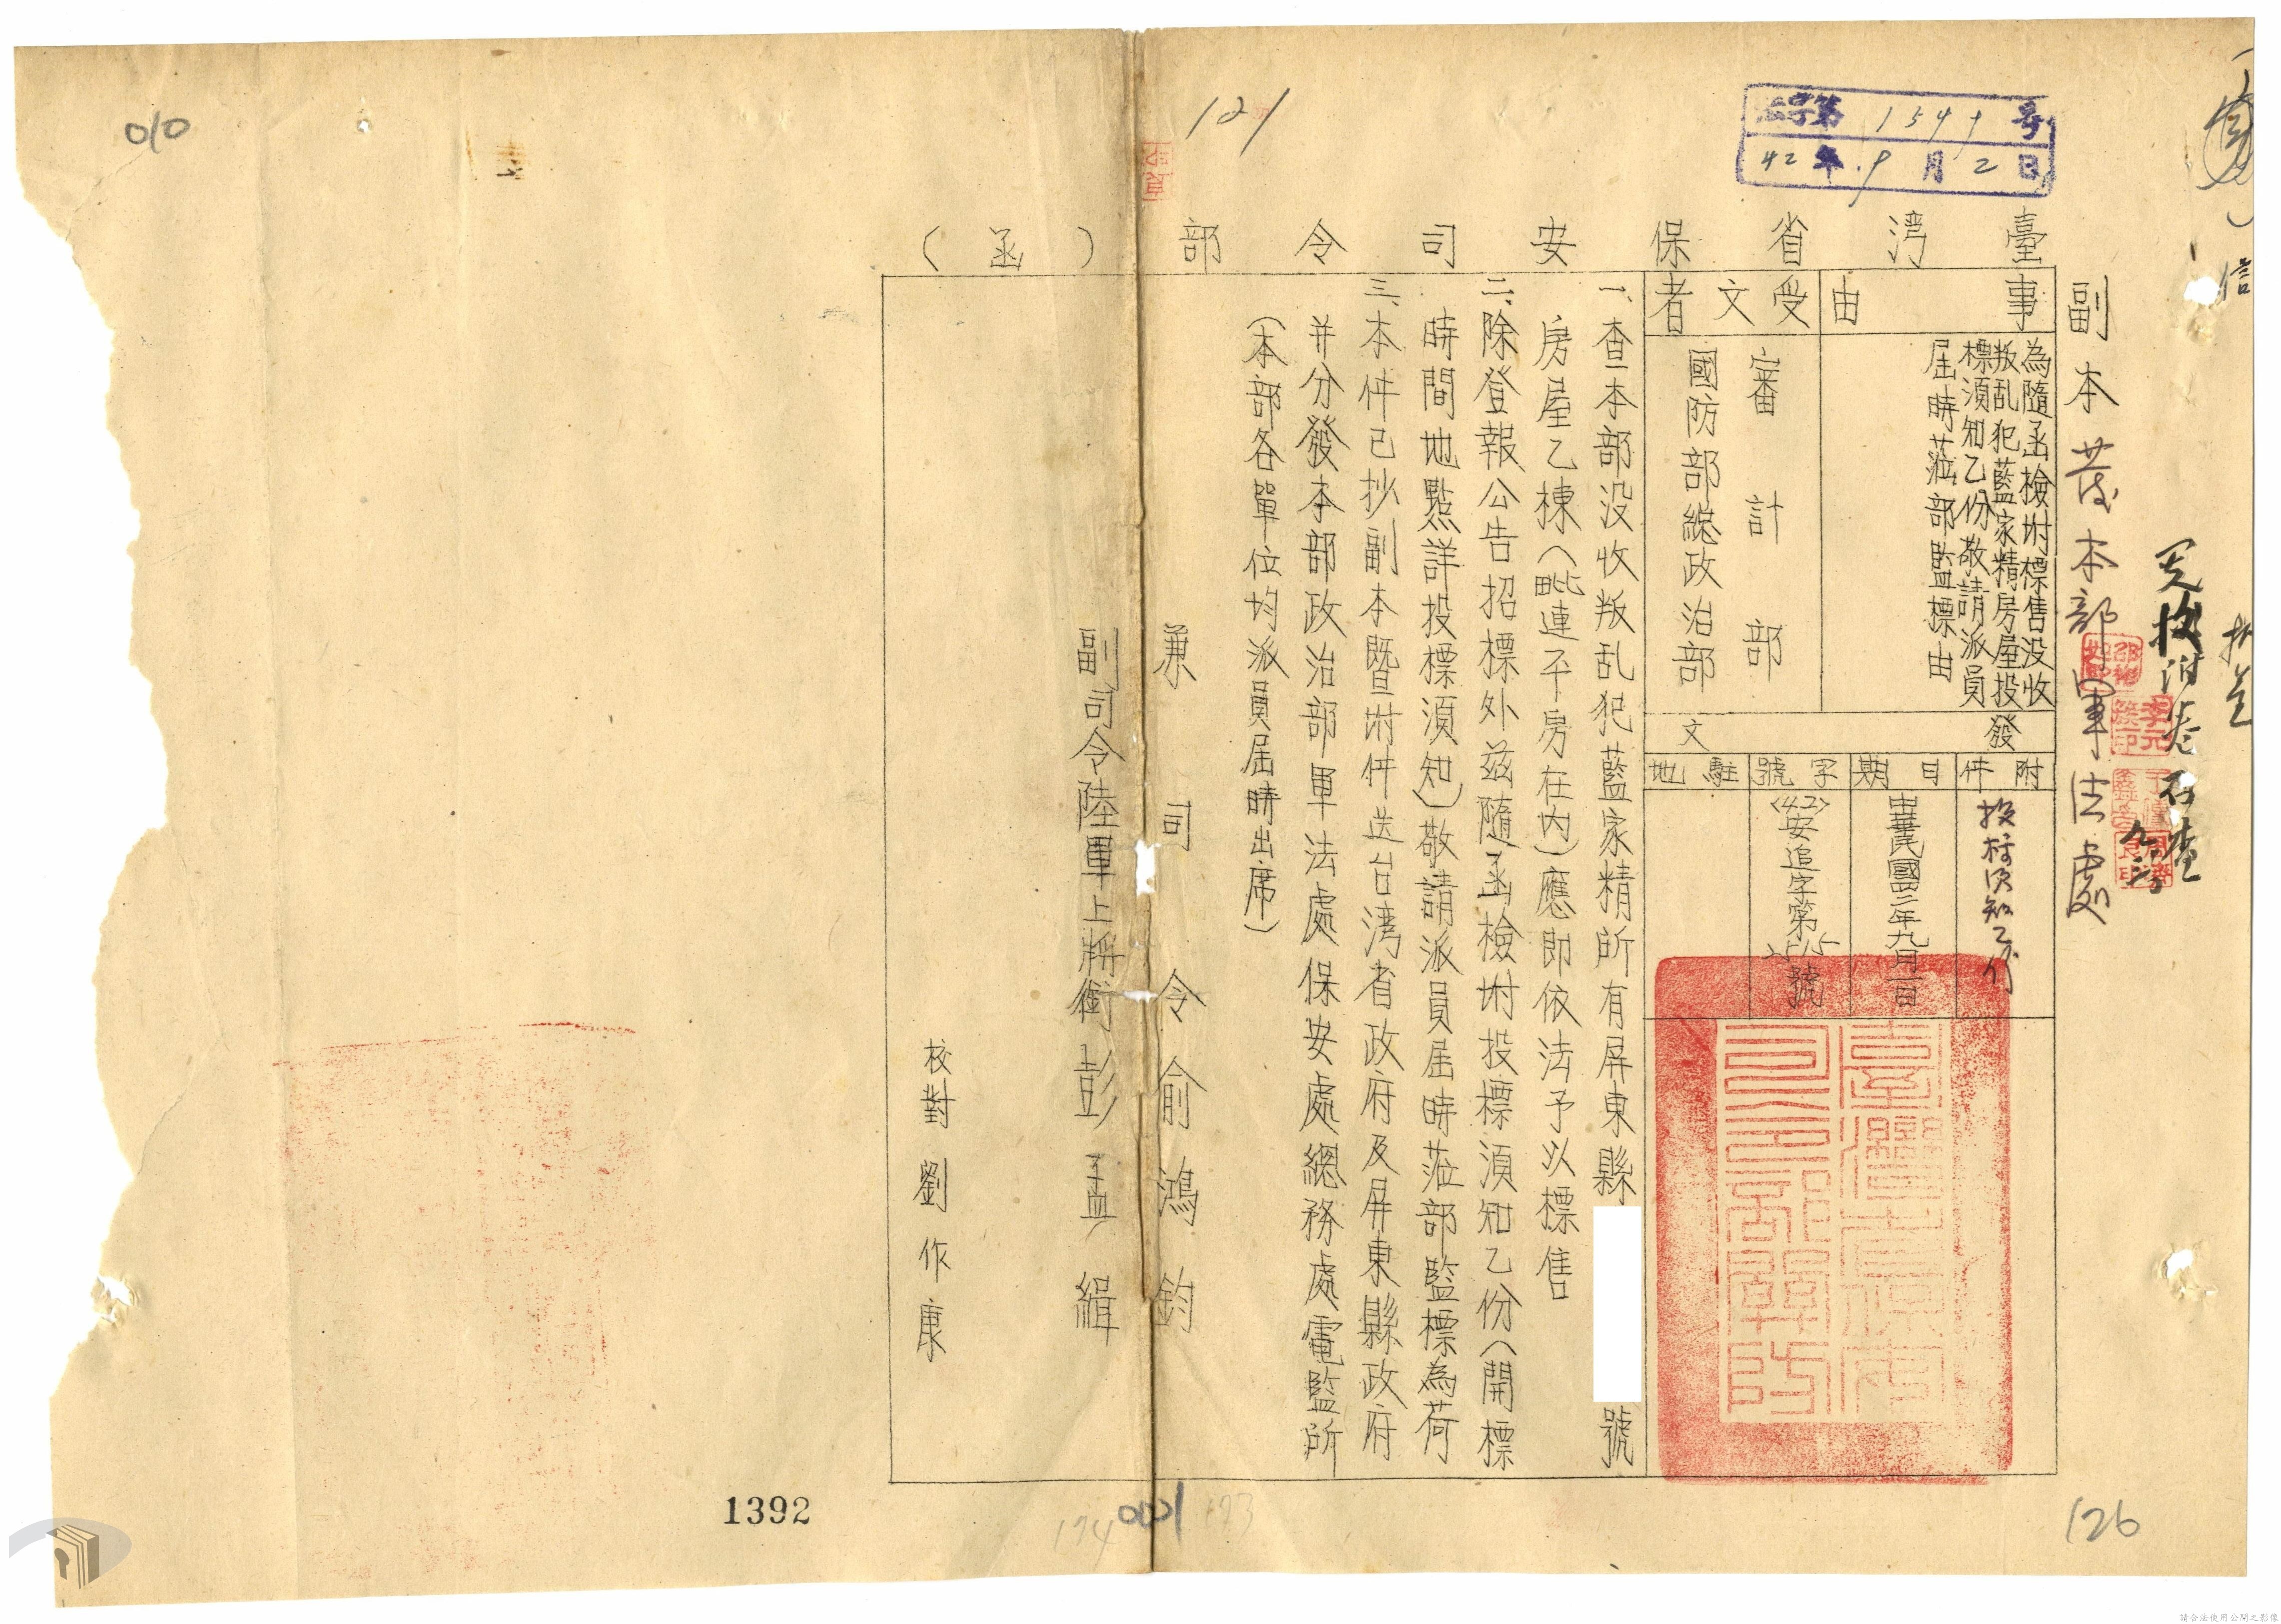 010
121
法字第1549號
42年9月2日
信
副本發本部軍法處
臺灣省保安司令部(函)
事由
為隨函檢附標售没收
叛乱犯藍家精房屋投
標須知乙份敬請派員
屆時蒞部監標由
受文者
審計部
國防部總政治部
發文
附件
投標須知乙份
日期
中華民國四二年九月一日
字號
(42)安追字第2515號
駐地
一、查本部没收叛乱犯藍家精所有屏東縣 號
房屋乙棟(毗連平房在内)應即依法予以標售
二、除登報公告招標外兹隨函檢附投標須知乙份(開標
時間地點詳投標須知)敬請派員屆時蒞部監標為荷
三、本件已抄副本暨附件送台湾省政府及屏東縣政府
并分發本部政治部軍法處保安處總務處電監所
(本部各單位均派員屆時出席)
兼司令俞鴻鈞
副司令陸軍上將銜彭孟緝
校對劉作康
臺灣省保安司令部關防
1392
174
001
173
126
請合法使用公開之影像